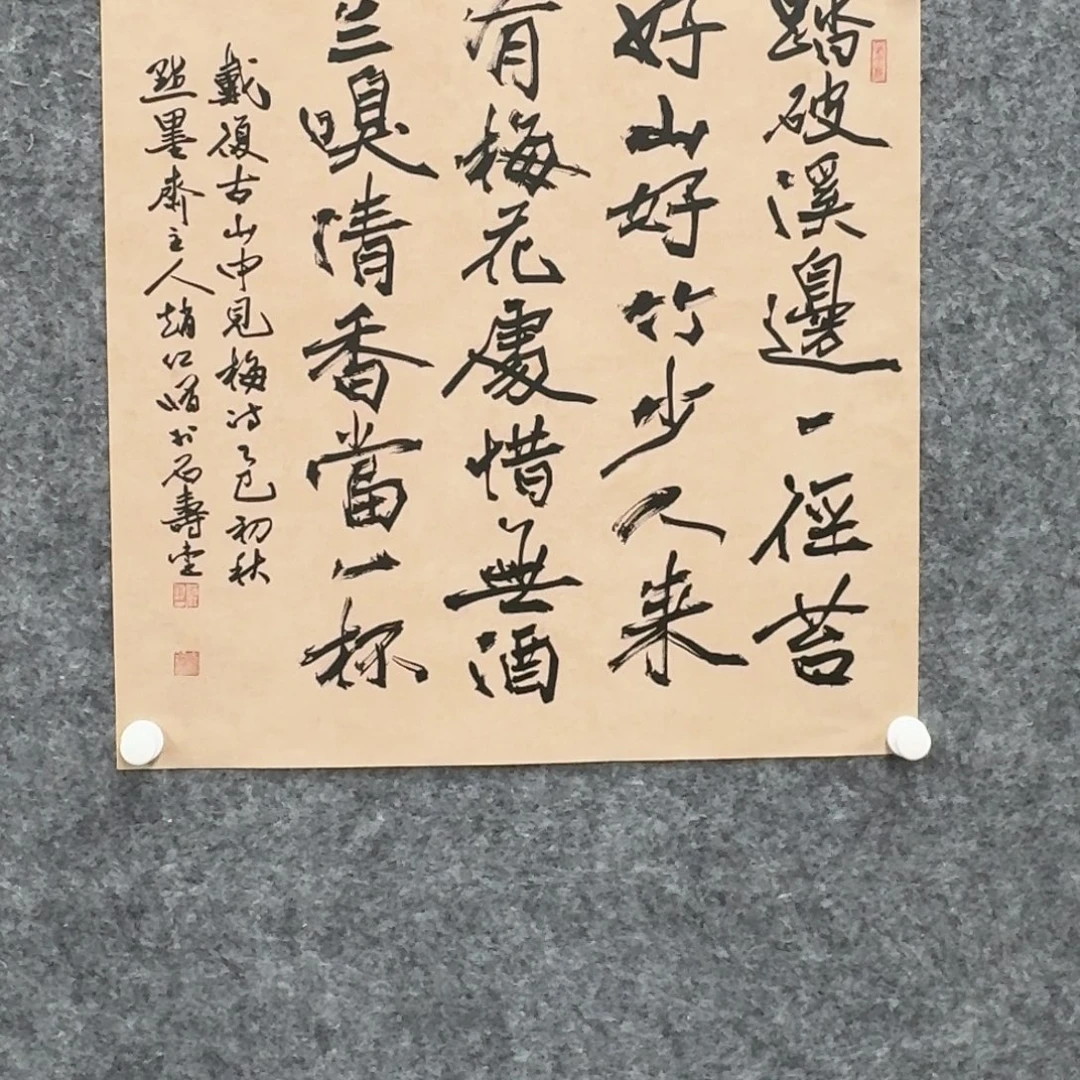 踏破溪邊一徑苔
好山好竹少人来
有梅花處惜無酒
三嗅清香當一杯
戴復古山中見梅诗乙巳初秋
點墨齋主人趙仁於石壽堂